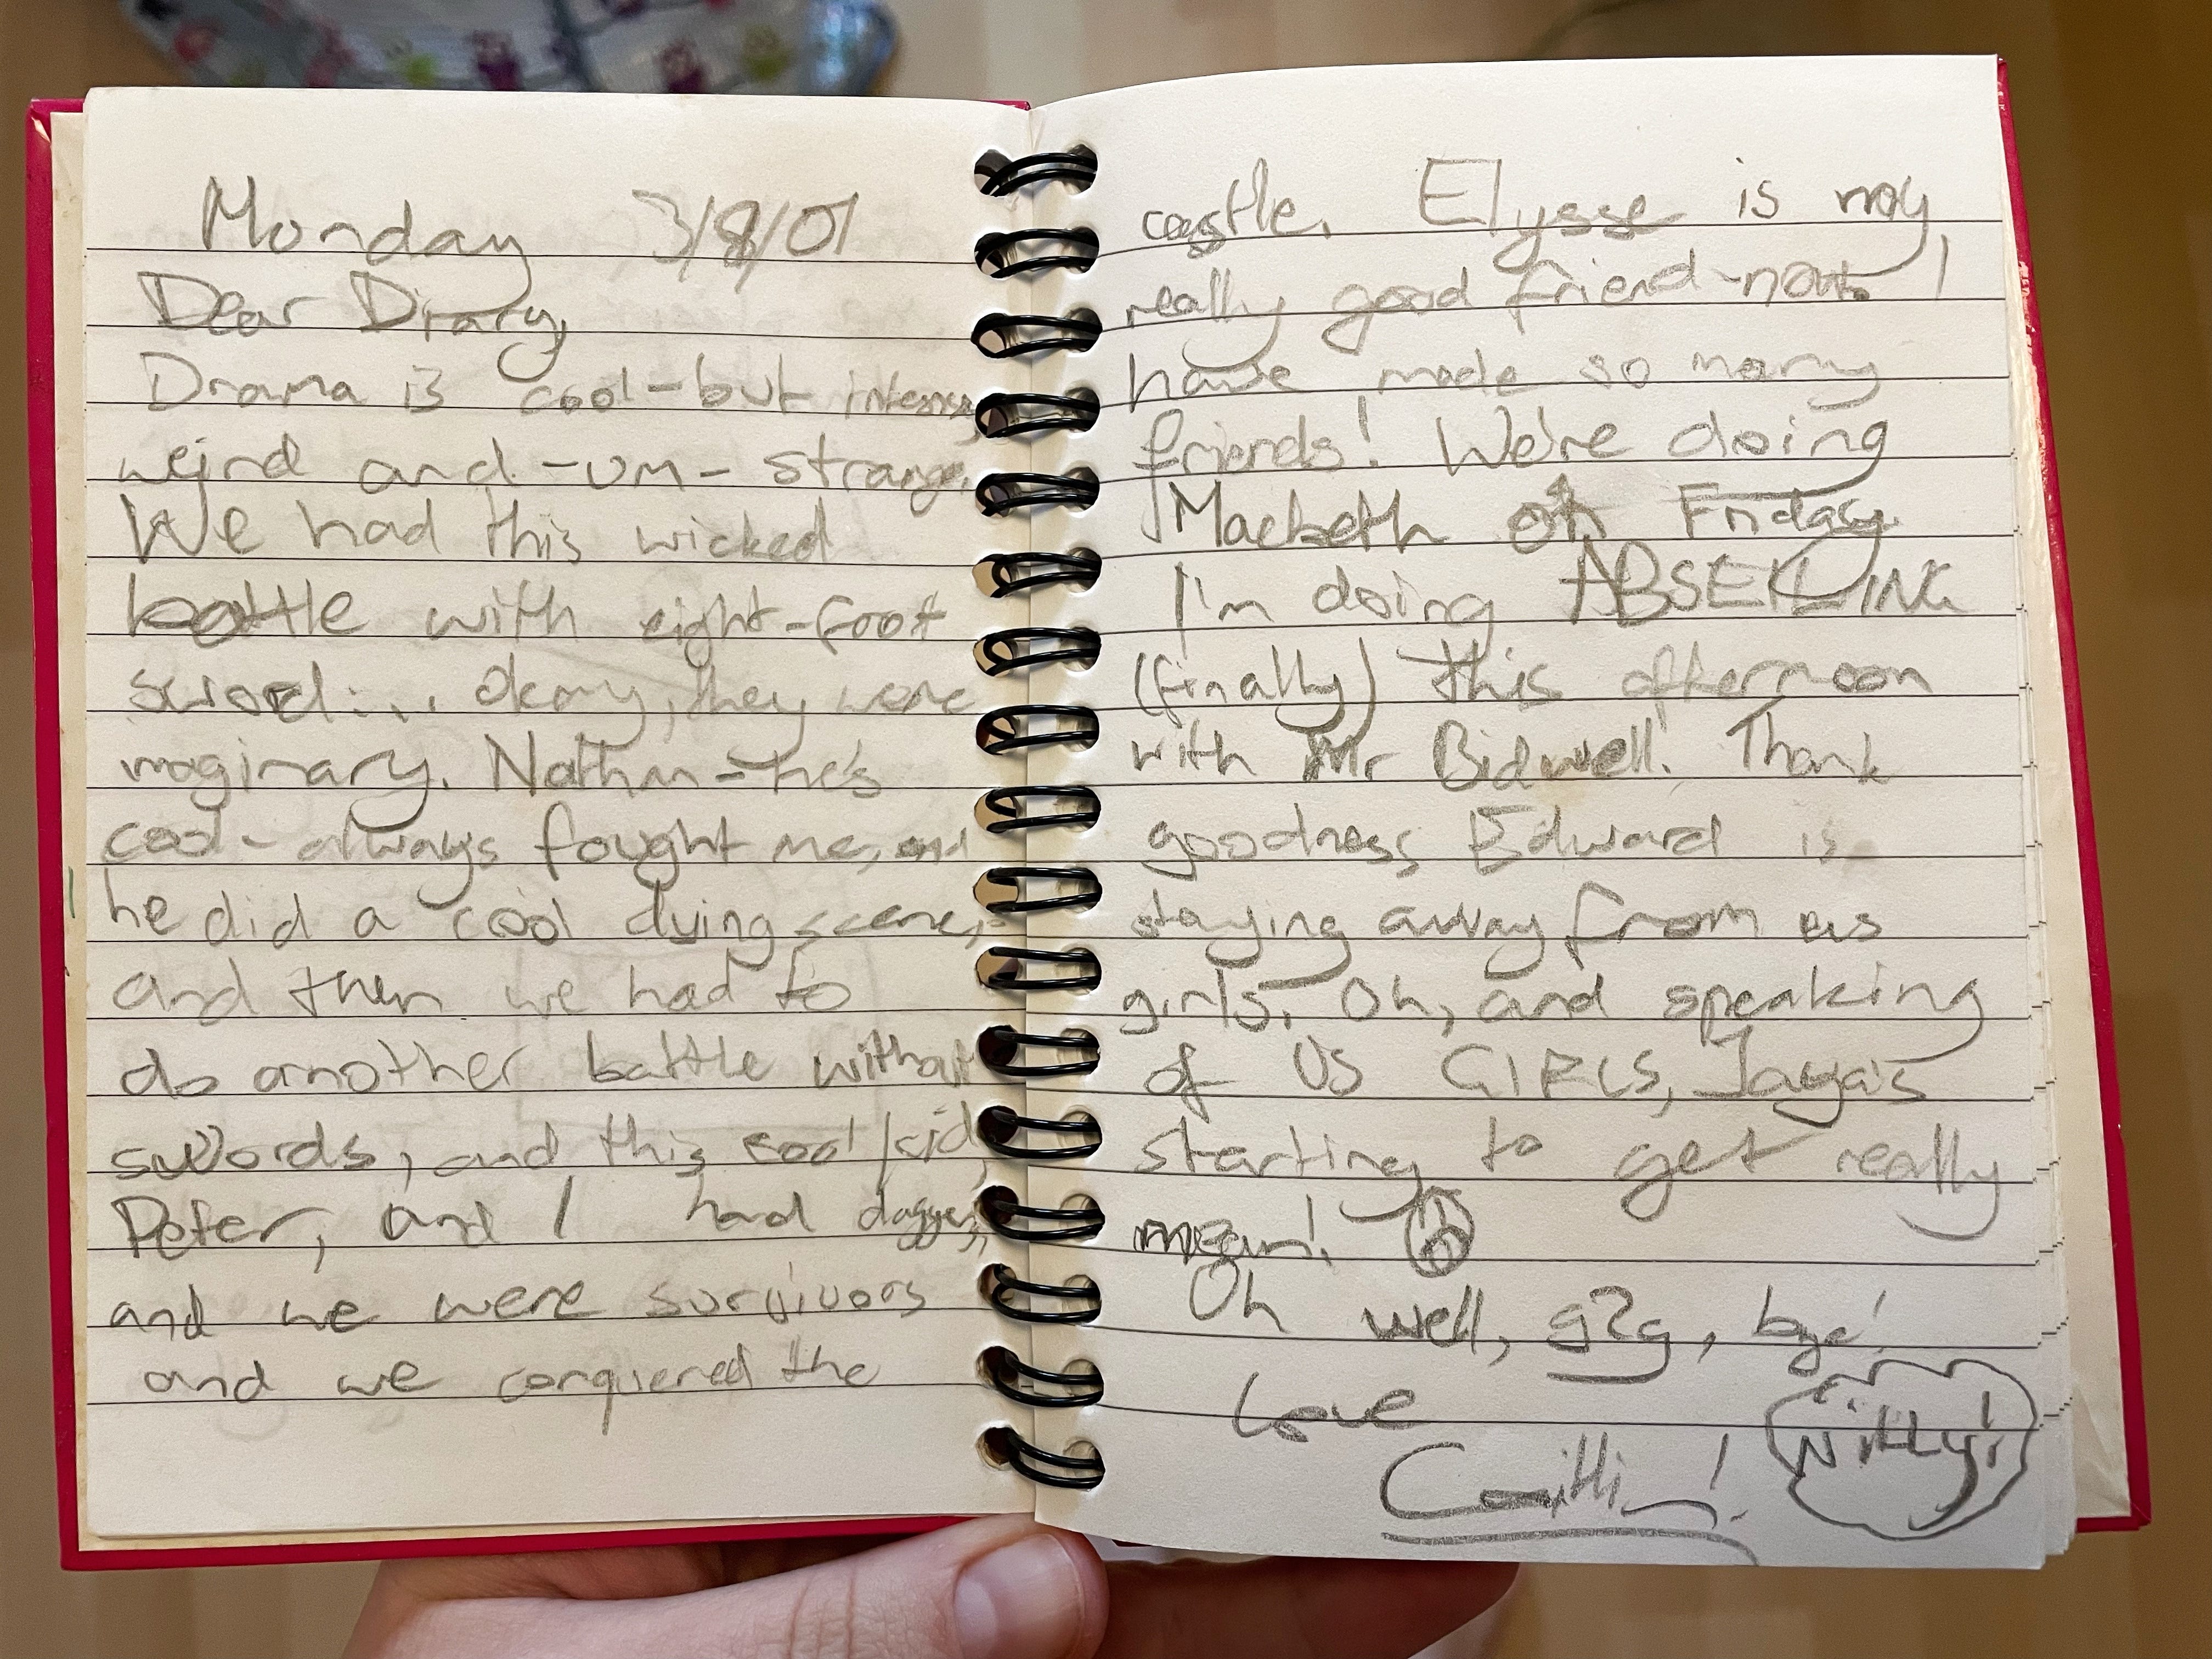 Monday 3/8/01
Dear Diary,
Drama is cool - but intense,
weird and - um - strange.
We had this wicked
battle with eight-foot
sword... okay, they were
imaginary. Nathan - he's
cool - always fought me, and
he did a cool dying scene,
and then we had to
do another battle without
swords, and this cool kid,
Peter, and I had daggers,
and we were survivors
and we conquered the
castle. Elysse is my
really good friend - now I
have made so many
friends! We're doing
Macbeth on Friday.
I'm doing ABSEILING
(finally) this afternoon
with Mr Bidwell! Thank
goodness Edward is
staying away from us
girls. Oh, and speaking
of US GIRLS, Jaya's
starting to get really
mean!
Oh well, g2g, bye!
Love
Caitlin!